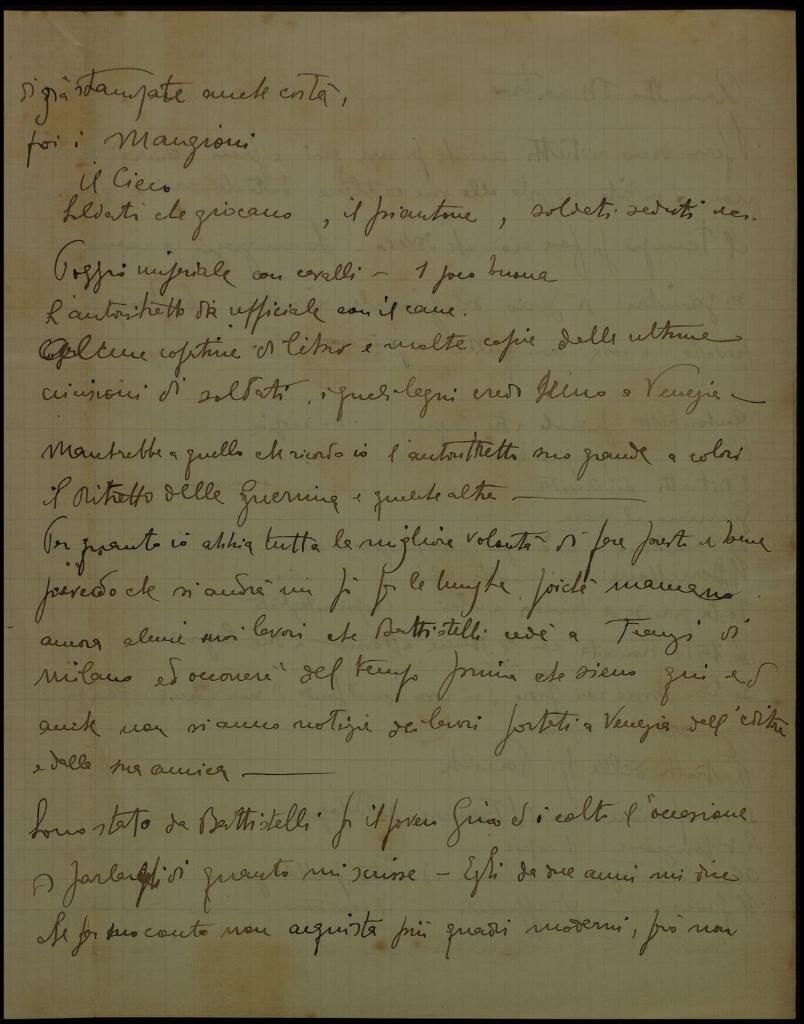 di già stampate anche costà,
poi i Mangioni
il Cieco
Soldati che giocano, il piantone, soldati seduti ecc.
Poggio imperiale con cavalli – 1 poco buona
L'autoritratto da ufficiale con il cane.
Alcune copertine di libro e molte copie delle ultime
incisioni di soldati, i quali legni credo siano a Venezia —
Mancherebbe a quello che ricordo io l'autoritratto suo grande a colori
il ritratto della Guerrina e qualche altra ———
Per quanto io abbia tutta la migliore volontà di fare presto e bene
prevedo che si andrà un pò per le lunghe poichè mancano
ancora alcuni suoi lavori che Battistelli cedè a di
Milano ed occorrerà del tempo prima che sieno qui ed
anche non si anno notizie dei lavori portati a Venezia dell'editore
e dalla sua amica ———
Sono stato da Battistelli p il povero ed ò colto l'occasione
di parlargli di quanto mi scrisse – Egli da due anni mi dice
che per suo conto non acquista più quadri moderni, però non